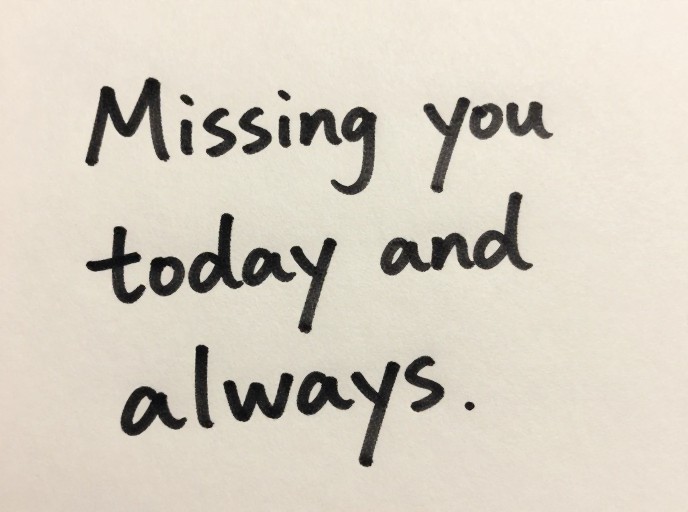 Missing you
today and
always.